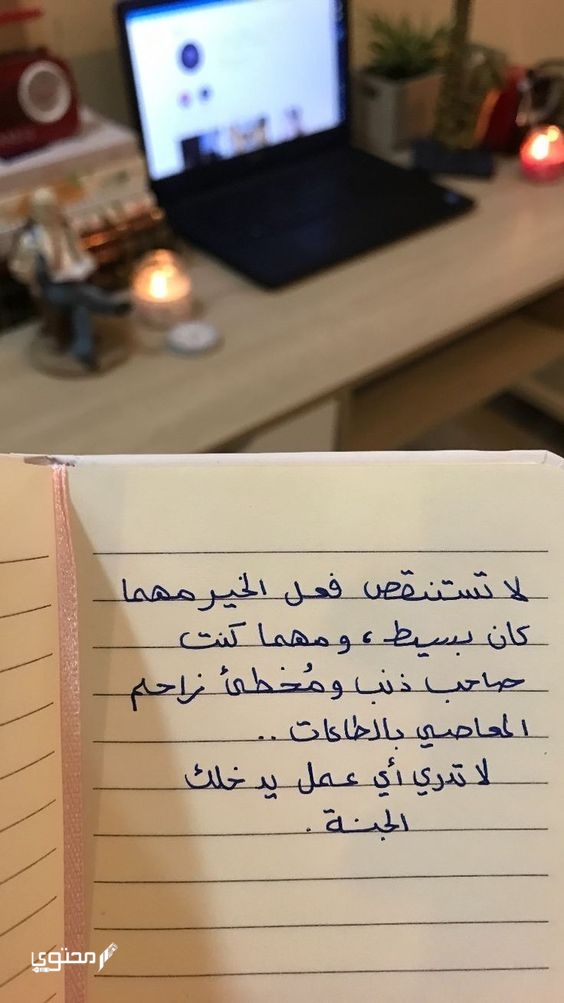 لا تستنقص فعل الخير مهما
كان بسيط، ومهما كنت
صاحب ذنب ومُخطئ زاحم
المعاصي بالطاعات ..
لا تدري أي عمل يدخلك
الجنة .
محتوى